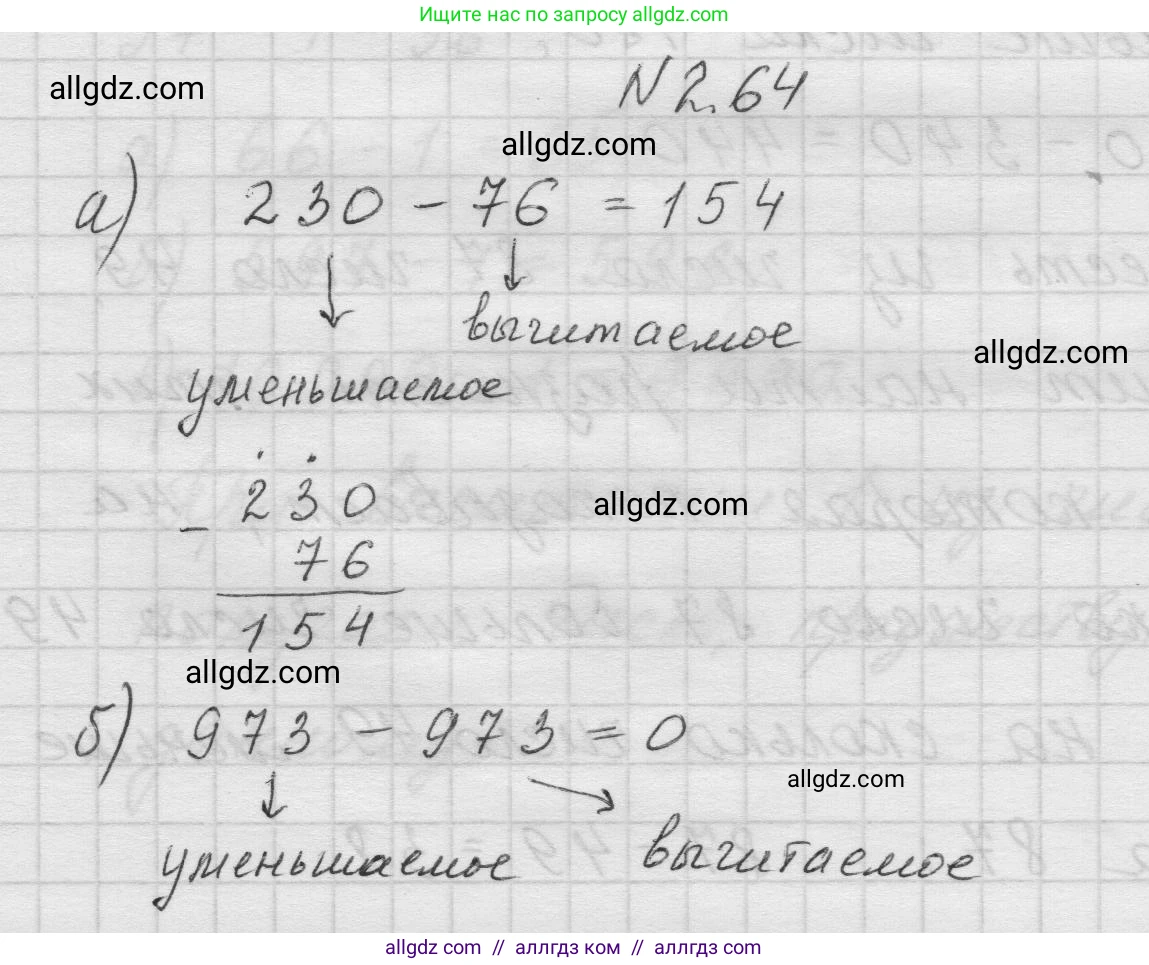 Ищите нас по запросу allgdz.com
allgdz.com
N 2.64
allgdz.com
а) 230 - 76 = 154
вычитаемое
allgdz.com
уменьшаемое
- 230
allgdz.com
76
154
allgdz.com
б) 973 - 973 = 0
allgdz.com
уменьшаемое вычитаемое
allgdz.com // аллгдз ком // аллгдз.com